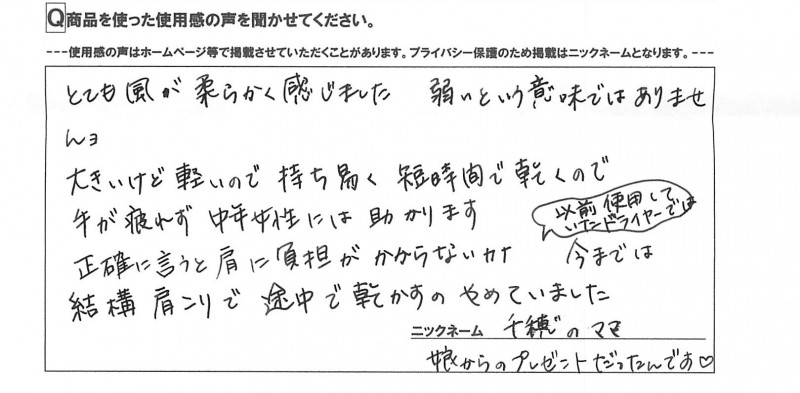 Q商品を使った使用感の声を聞かせてください。
---使用感の声はホームページ等で掲載させていただくことがあります。プライバシー保護のため掲載はニックネームとなります。---
とても風が柔らかく感じました 弱いという意味ではありませ
んョ
大きいけど軽いので持ち易く短時間で乾くので
手が疲れず中年女性には助かります
以前使用して
いたドライヤーでは
正確に言うと肩に負担がかからないカナ 今までは
結構肩こりで途中で乾かすのやめていました
ニックネーム 千穂のママ
娘からのプレゼントだったんです♡